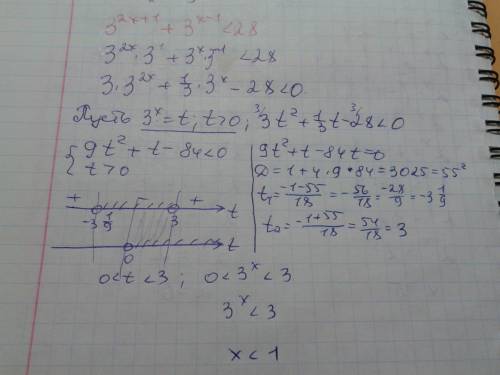 3^{2x+1} + 3^{x-1} < 28
3^{2x} · 3^1 + 3^x · 3^{-1} < 28
3 · 3^{2x} + 1/3 · 3^x - 28 < 0
Пусть 3^x = t, t > 0; ^{3/}3t^2 + 1/3 t - ^{3/}28 < 0
{ 9t^2 + t - 84 < 0
t > 0
9t^2 + t - 84t = 0
D = 1 + 4 · 9 * 84 = 3025 = 55^2
t_1 = (-1-55)/18 = -56/18 = -28/9 = -3 1/9
t_2 = (-1+55)/18 = 54/18 = 3
+ - + t
-3 1/9 3
t
0
0 < t < 3 ; 0 < 3^x < 3
3^x < 3
x < 1